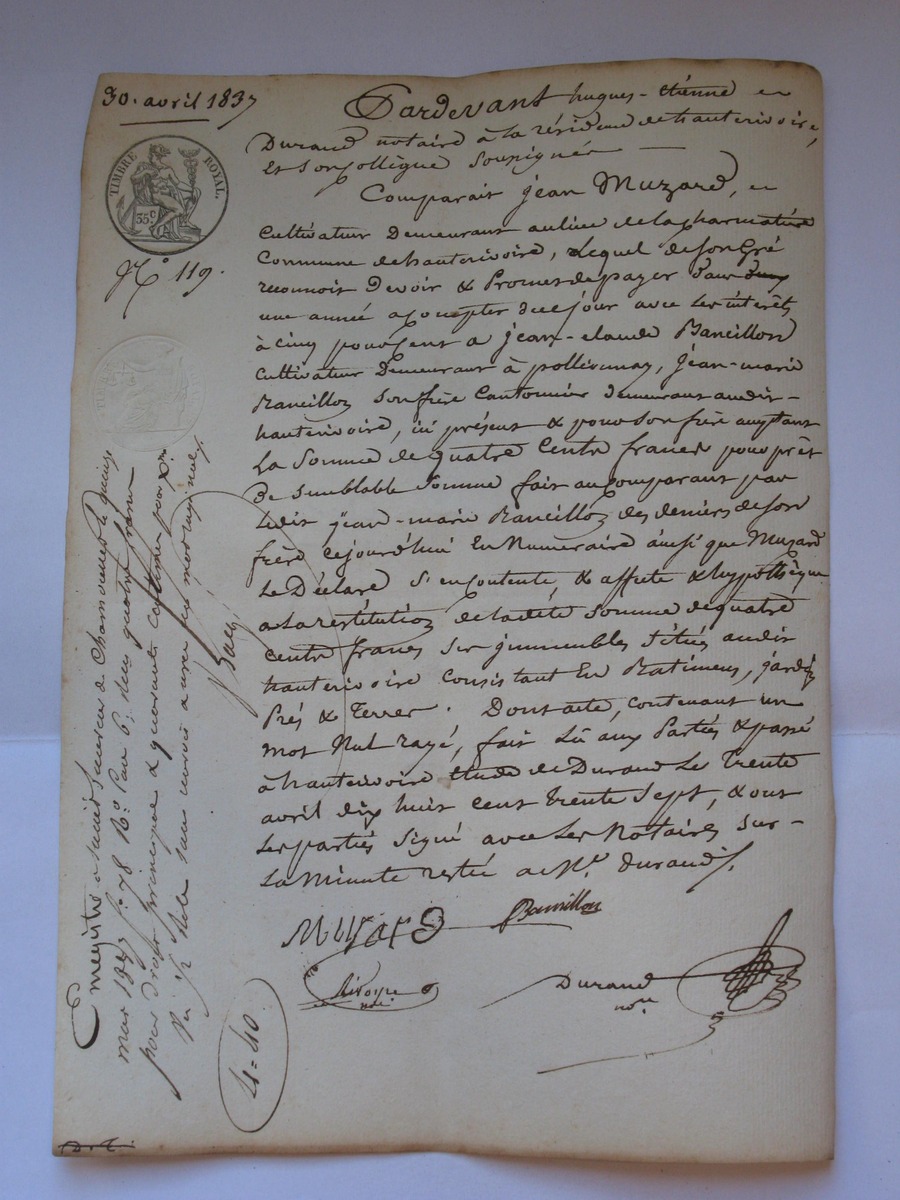 30. avril 1837
TIMBRE ROYAL.
35 c.
N.° 119.
Pardevant hugues-étienne
Durand notaire à la résidence de hauterivoire,
Et son Collègue Soussignés —
Comparait jean Muzard,
Cultivateur Demeurant au lieu de la
Commune de hauterivoire, Lequel de son Gré
reconnoit Devoir & Promet de payer Dans
une année a Compter de ce jour avec Les intérêts
à Cinq pour Cent a jean-claude Rancillon
Cultivateur Demeurant à pollionnay, jean-marie
Rancillon Son frère Cantonnier demeurant audit-
hauterivoire, ici présent & pour son frère acceptant
La Somme de quatre Cents francs pour prêt
De Semblable Somme fait au Comparant par
Ledit jean-marie Rancillon des deniers de son
frère Cejourd'hui En Numeraire ainsi que Muzard
Le Déclare S'en Contente, & affecte & hypothèque
a La restitution de ladite Somme de quatre
Cents francs Ses jmmeubles Situés audit
hauterivoire Consistant En Batimens, jardin
Prés & Terres. Dont acte, contenant un
mot Nul rayé, fait Lû aux Parties & passé
à hauterivoire étude de Durand Le Trente
avril dix huit Cent Trente Sept, & ont
Les parties Signé avec Les Notaires Sur-
La Minute restée a M.e Durand.
Muzard
Rancillon
Durand
no.re
4=40
Enregistré à
mai 1837 f.° 78 R.° Case 6. deux quatre francs
pour droit principal & quarante centimes pour